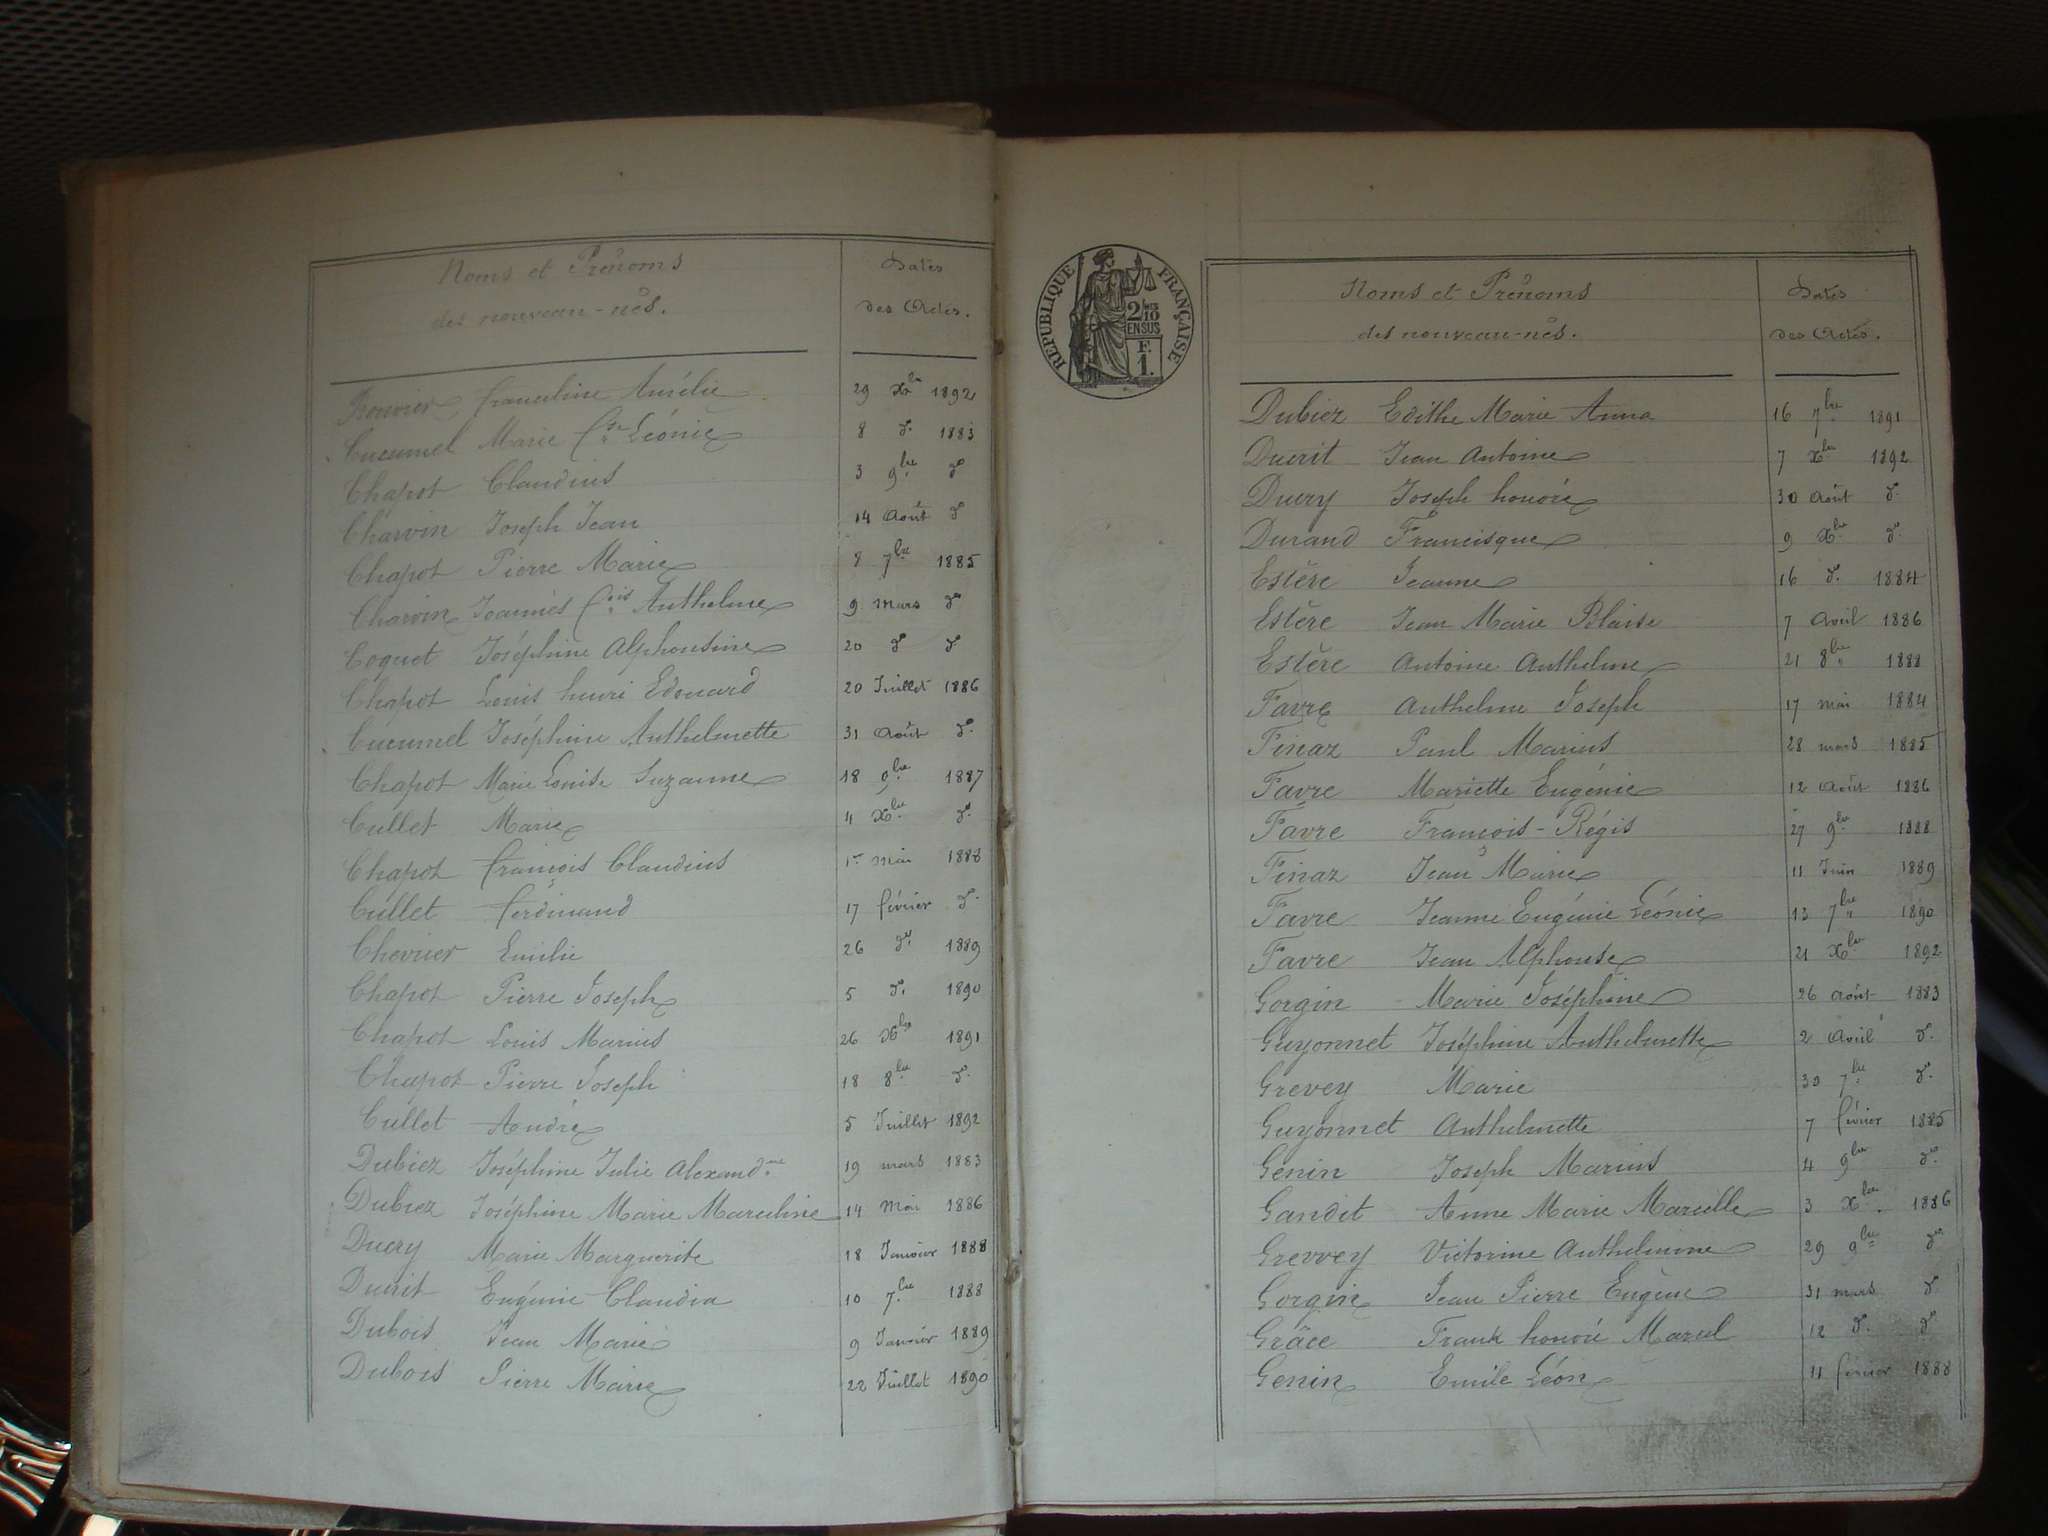 Noms et Prénoms
des nouveau-nés.
Dates
des Actes.
Franceline Aurélie 29 Xbre 1892
Cucumel Marie Cse Léonie 8 do 1883
Chapot Claudius 3 9bre do
Charvin Joseph Jean 14 Août do
Chapot Pierre Marie 8 7bre 1885
Charvin Joannès fçois Anthelme 9 Mars do
Coquet Joséphine Alphonsine 20 do do
Chapot Louis henri Edouard 20 Juillet 1886
Cucumel Joséphine Anthelmette 31 Août do
Chapot Marie Louise Suzanne 18 9bre 1887
Cullet Marie 4 Xbre do
Chapot françois Claudius 1er mai 1888
Cullet ferdinand 17 février do
Chevrier Emilie 26 do 1889
Chapot Pierre Joseph 5 do 1890
Chapot Louis Marius 26 Xbre 1891
Chapot Pierre Joseph 18 8bre do
Cullet André 5 Juillet 1892
Dubiez Joséphine Julie Alexandrine 19 mars 1883
Dubiez Joséphine Marie Marceline 14 Mai 1886
Ducry Marie Marguerite 18 Janvier 1888
Ducrit Eugénie Claudia 10 7bre 1888
Dubois Jean Marie 9 Janvier 1889
Dubois Pierre Marie 22 Juillet 1890
RÉPUBLIQUE FRANÇAISE
2/10
EN SUS
F.
1.
Noms et Prénoms
des nouveau-nés.
Dates
des Actes.
Dubiez Edithe Marie Anna 16 7bre 1891
Ducrit Jean Antoine 7 Xbre 1892
Ducry Joseph honoré 30 Août do
Durand Francisque 9 Xbre do
Estère Jeanne 16 do 1884
Estère Jean Marie Blaise 7 Avril 1886
Estère Antoine Anthelme 21 8bre 1888
Favre Anthelme Joseph 17 mai 1884
Finaz Paul Marius 28 mars 1885
Favre Mariette Eugénie 12 Août 1886
Favre François-Régis 27 9bre 1888
Finaz Jean Marie 11 Juin 1889
Favre Jeanne Eugénie Léonie 13 7bre 1890
Favre Jean Alphonse 21 Xbre 1892
Gorgin Marie Joséphine 26 Août 1883
Guyonnet Joséphine Anthelmette 2 Avril do
Grevey Marie 30 7bre do
Guyonnet Anthelmette 7 février 1885
Genin Joseph Marius 4 9bre do
Gandit Anne Marie Marcelle 3 Xbre 1886
Grevvey Victorine Anthelmine 29 9bre do
Gorgin Jean Pierre Eugène 31 mars do
Grâce Frank honoré Marcel 12 do do
Genin Emile Léon 11 février 1888